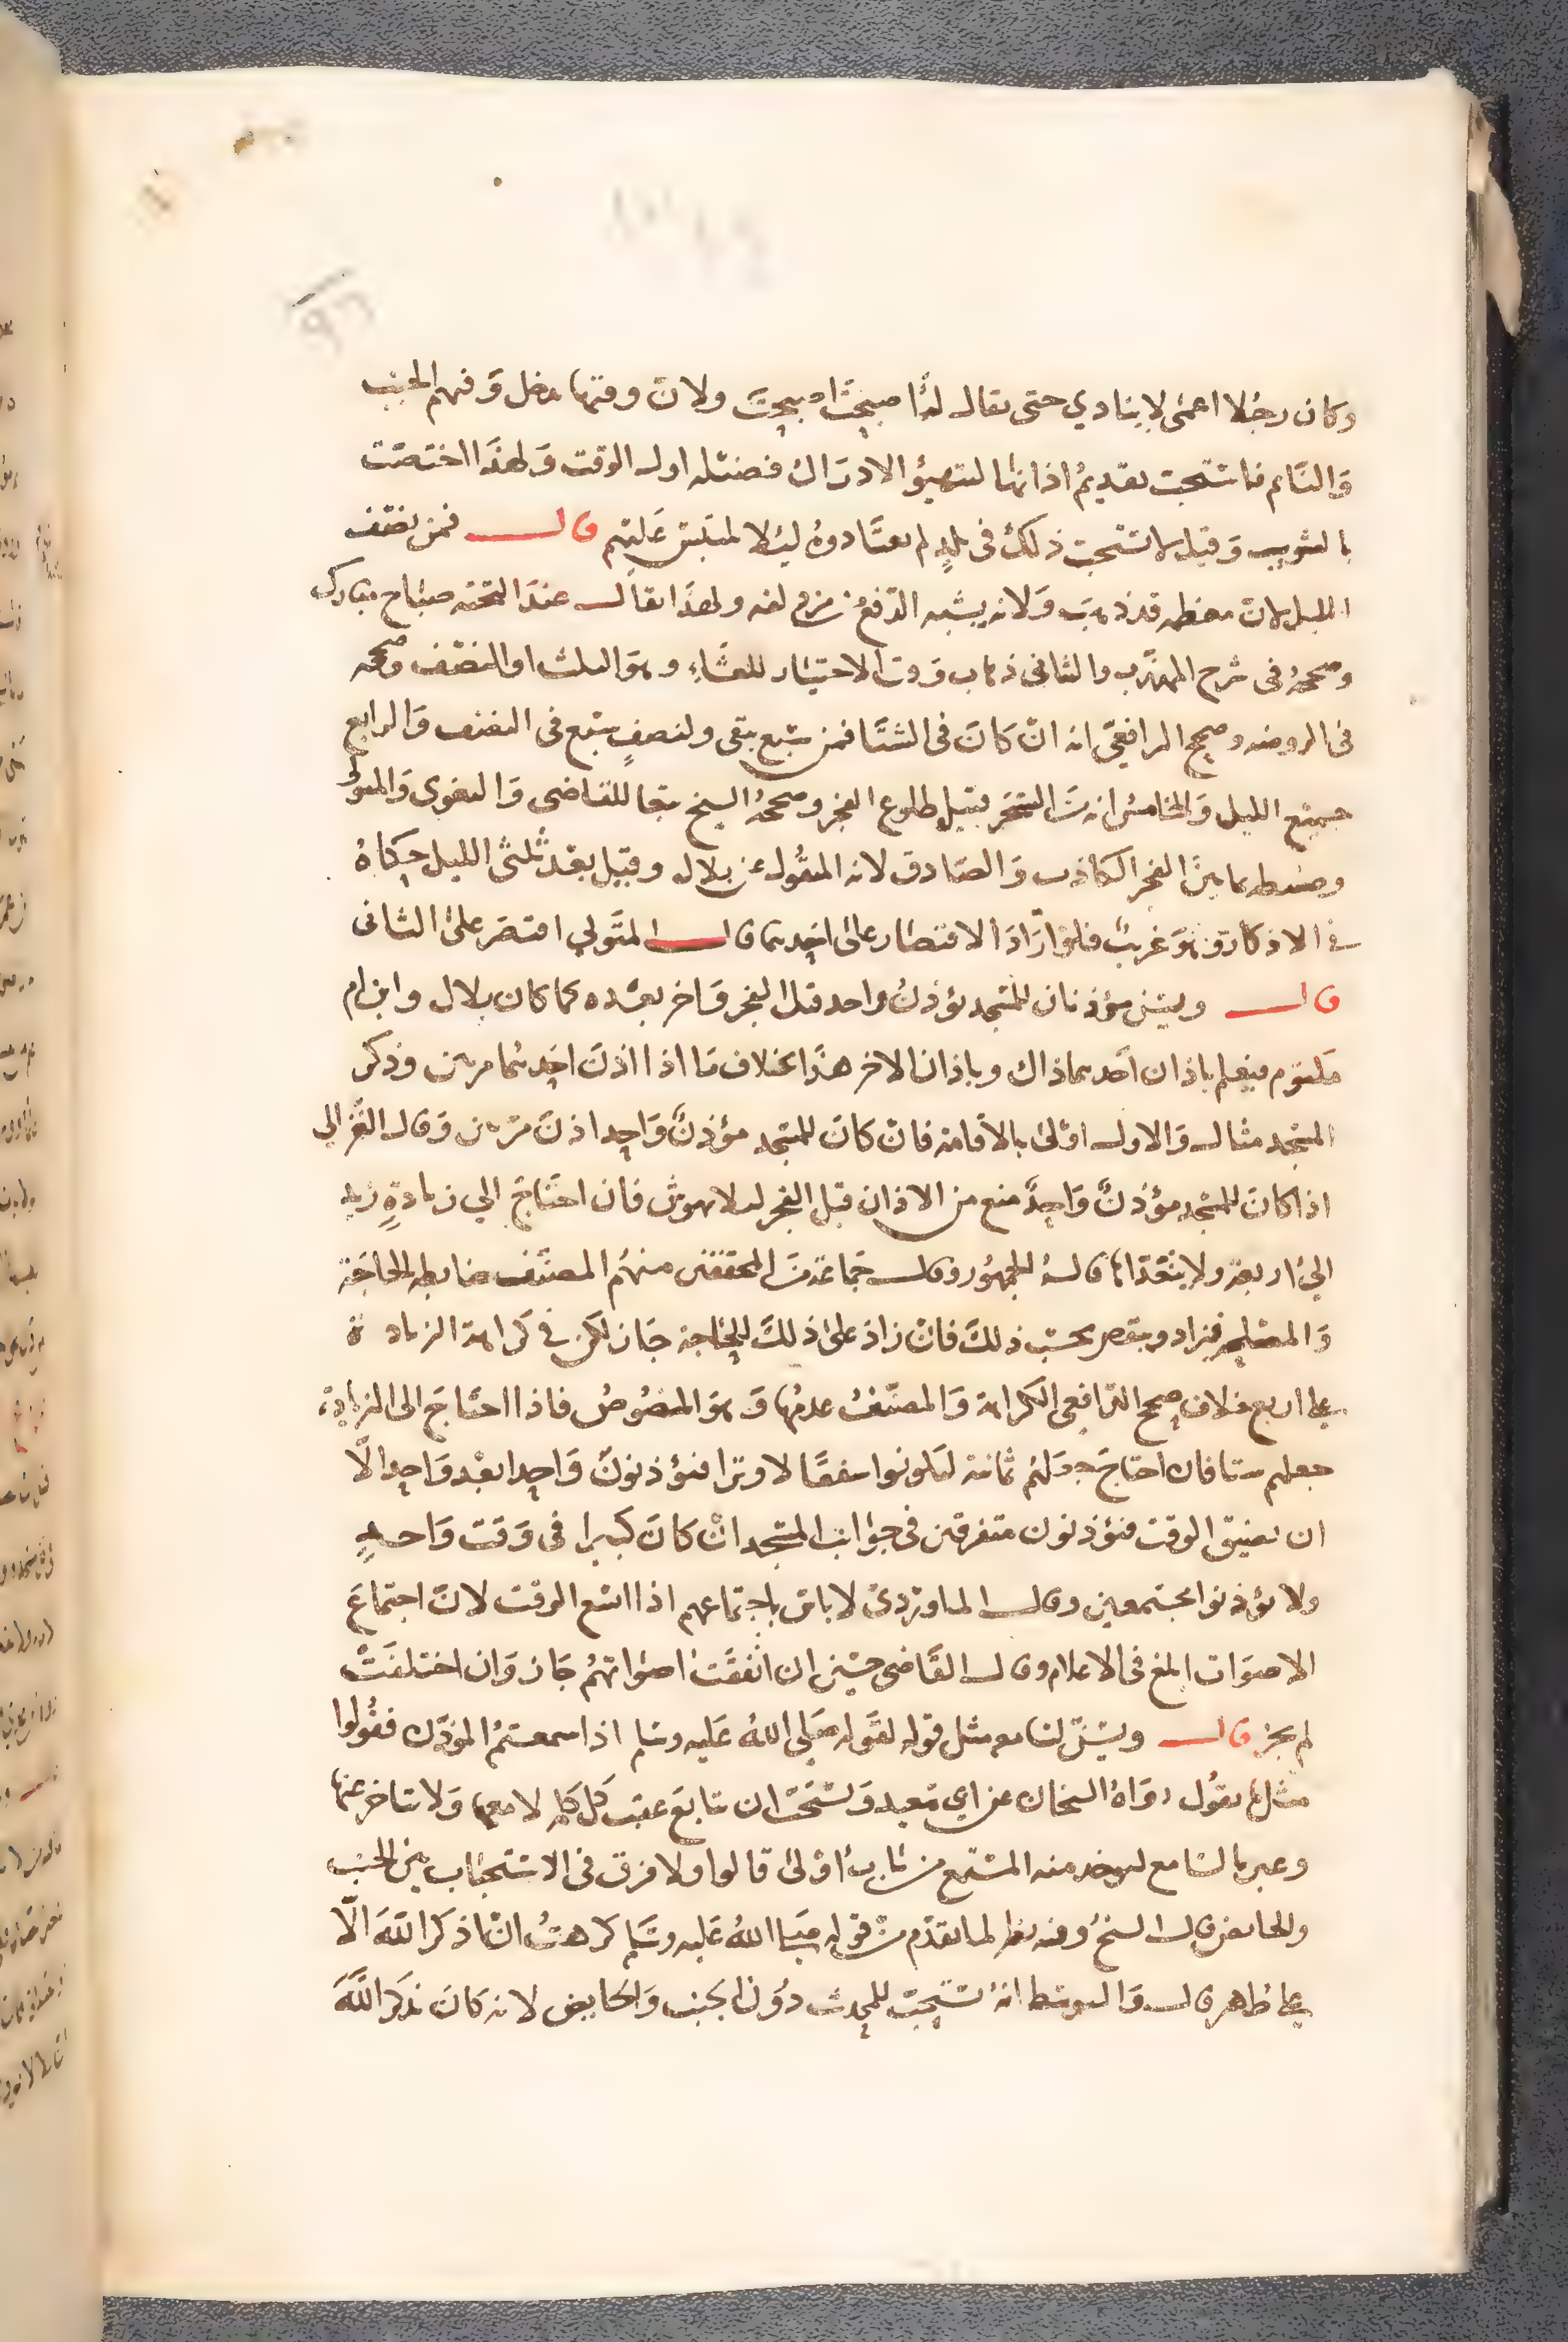 وكان رجلا اعمى لا ينادي حتى يقال له اصبحت اصبحت ولان وقتها يدخل وفيهم الجنب
والنائم فاستحب تقديم اذانها لتهيؤ الادراك فضيلة اول الوقت ولهذا اختصت
بالتثويب وقيل لا تستحب ذلك في بلد لم يعتادوه ليلا يلتبس عليهم قال فمن نصف
الليل لان معظمه قد ذهب ولانه يشبه الدفع من مزدلفه ولهذا يقال عند التحيه صباح مبارك
وصححه في شرح المهذب والثاني ذهاب وقت الاختيار للعشاء وهو الثلث او النصف وصححه
في الروضه وصحح الرافعي انه ان كان في الشتا فمن سبع يبقى ولنصف سبع في الصيف والرابع
جميع الليل والخامس انه السحر قبيل طلوع الفجر وصححه الشيخ تبعا للقاضي والبغوي والمتولي
وضبطه بما بين الفجر الكاذب والصادق لانه المنقول عن بلال وقيل بعد ثلثي الليل حكاه
في الاذكار وهو غريب فلو اراد الاقتصار على احدهما قال المتولي اقتصر على الثاني
قال ويسن مؤذنان للمسجد يؤذن واحد قبل الفجر واخر بعده كما كان بلال وابن ام
مكتوم فيعلم باذان احدهما ذاك وباذان الاخر هذا بخلاف ما اذا اذن احدهما مرتين وذكر
المسجد مثال والاول اولى بالاقامة فان كان للمسجد مؤذن واحد اذن مرتين وقال الغزالي
اذا كان للمسجد مؤذن واحد منع من الاذان قبل الفجر ليلا يهوش فان احتاج الي زيادة زيد
الى اربعة ولا يتعدا ما قاله الجمهور وقال جماعة من المحققين منهم المصنف ضابطه الحاجة
والمصلحة فيزاد وينقص بحسب ذلك فان زاد على ذلك للحاجة جاز لكن في كراهة الزيادة
على اربع خلاف صحح الرافعي الكراهة والمصنف عدمها وهو المنصوص فاذا احتاج الى الزيادة
جعلهم ستا فان احتاج جعلهم ثمانية ليكونوا شفعا لا وترا فيؤذنون واحدا بعد واحد الا
ان يضيق الوقت فيؤذنون متفرقين في جوانب المسجد ان كان كبيرا في وقت واحد
ولا يؤذنوا مجتمعين وقال الماوردي لا باس باجتماعهم اذا اتسع الوقت لان اجتماع
الاصوات ابلغ في الاعلام وقال القاضي حسين ان اتفقت اصواتهم جاز وان اختلفت
لم يجز قال ويسن لسامعه مثل قوله لقوله صلى الله عليه وسلم اذا سمعتم المؤذن فقولوا
مثل ما يقول رواه الشيخان عن ابي سعيد ويستحب ان يتابع عقب كل كلمة لا معها ولا يتاخر عنها
وعبر بالسامع ليوخذ منه المستمع من باب اولى قالوا ولا فرق في الاستحباب بين الجنب
والحايض قال الشيخ وفيه نظر لما تقدم من قوله صلى الله عليه وسلم كرهت ان اذكر الله الا
على طاهر قال والتوسط انه يستحب للمحدث دون الجنب والحايض لانه كان يذكر الله